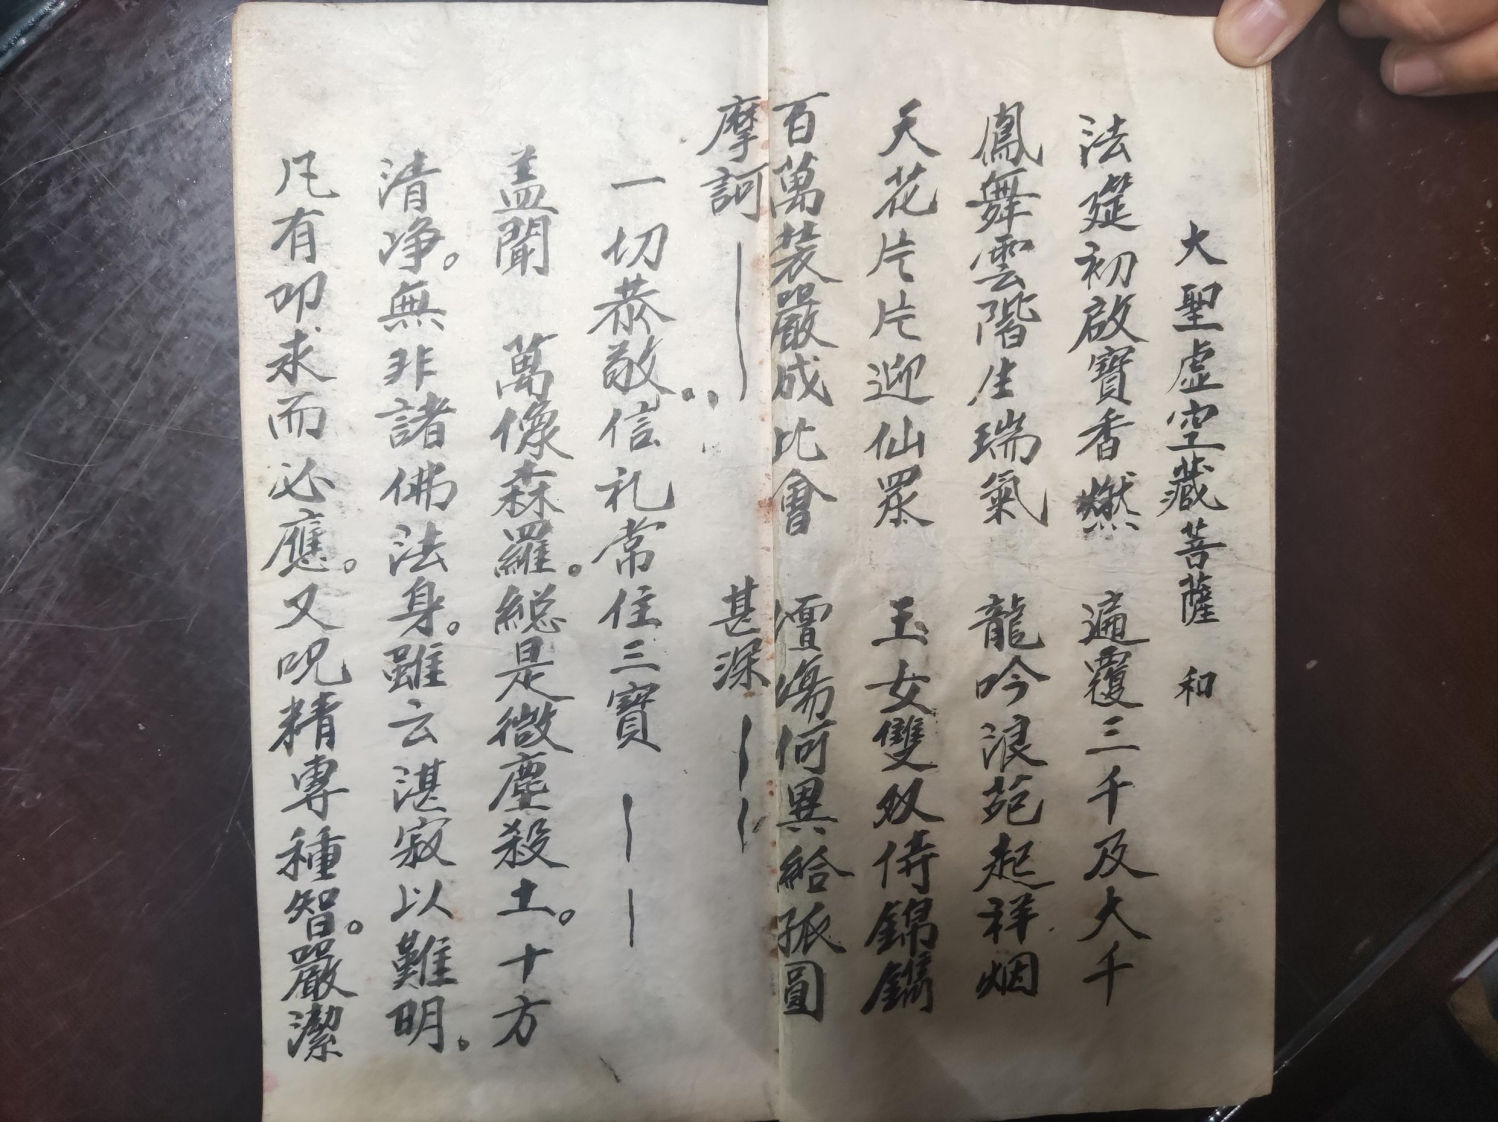 大聖虛空藏菩薩 和
法筵初啟寶香燃 遍覆三千及大千
鳳舞雲階生瑞氣 龍吟浪苑起祥烟
天花片片迎仙眾 玉女雙双侍錦鐫
百萬裝嚴成比會 何異給孤園
摩訶 甚深
一切恭敬信礼常住三寶
盖聞 萬像森羅。総是微塵殺土。十方
清净。無非諸佛法身。雖云湛寂以難明。
凡有叩求而必應。又呪精專種智。嚴潔